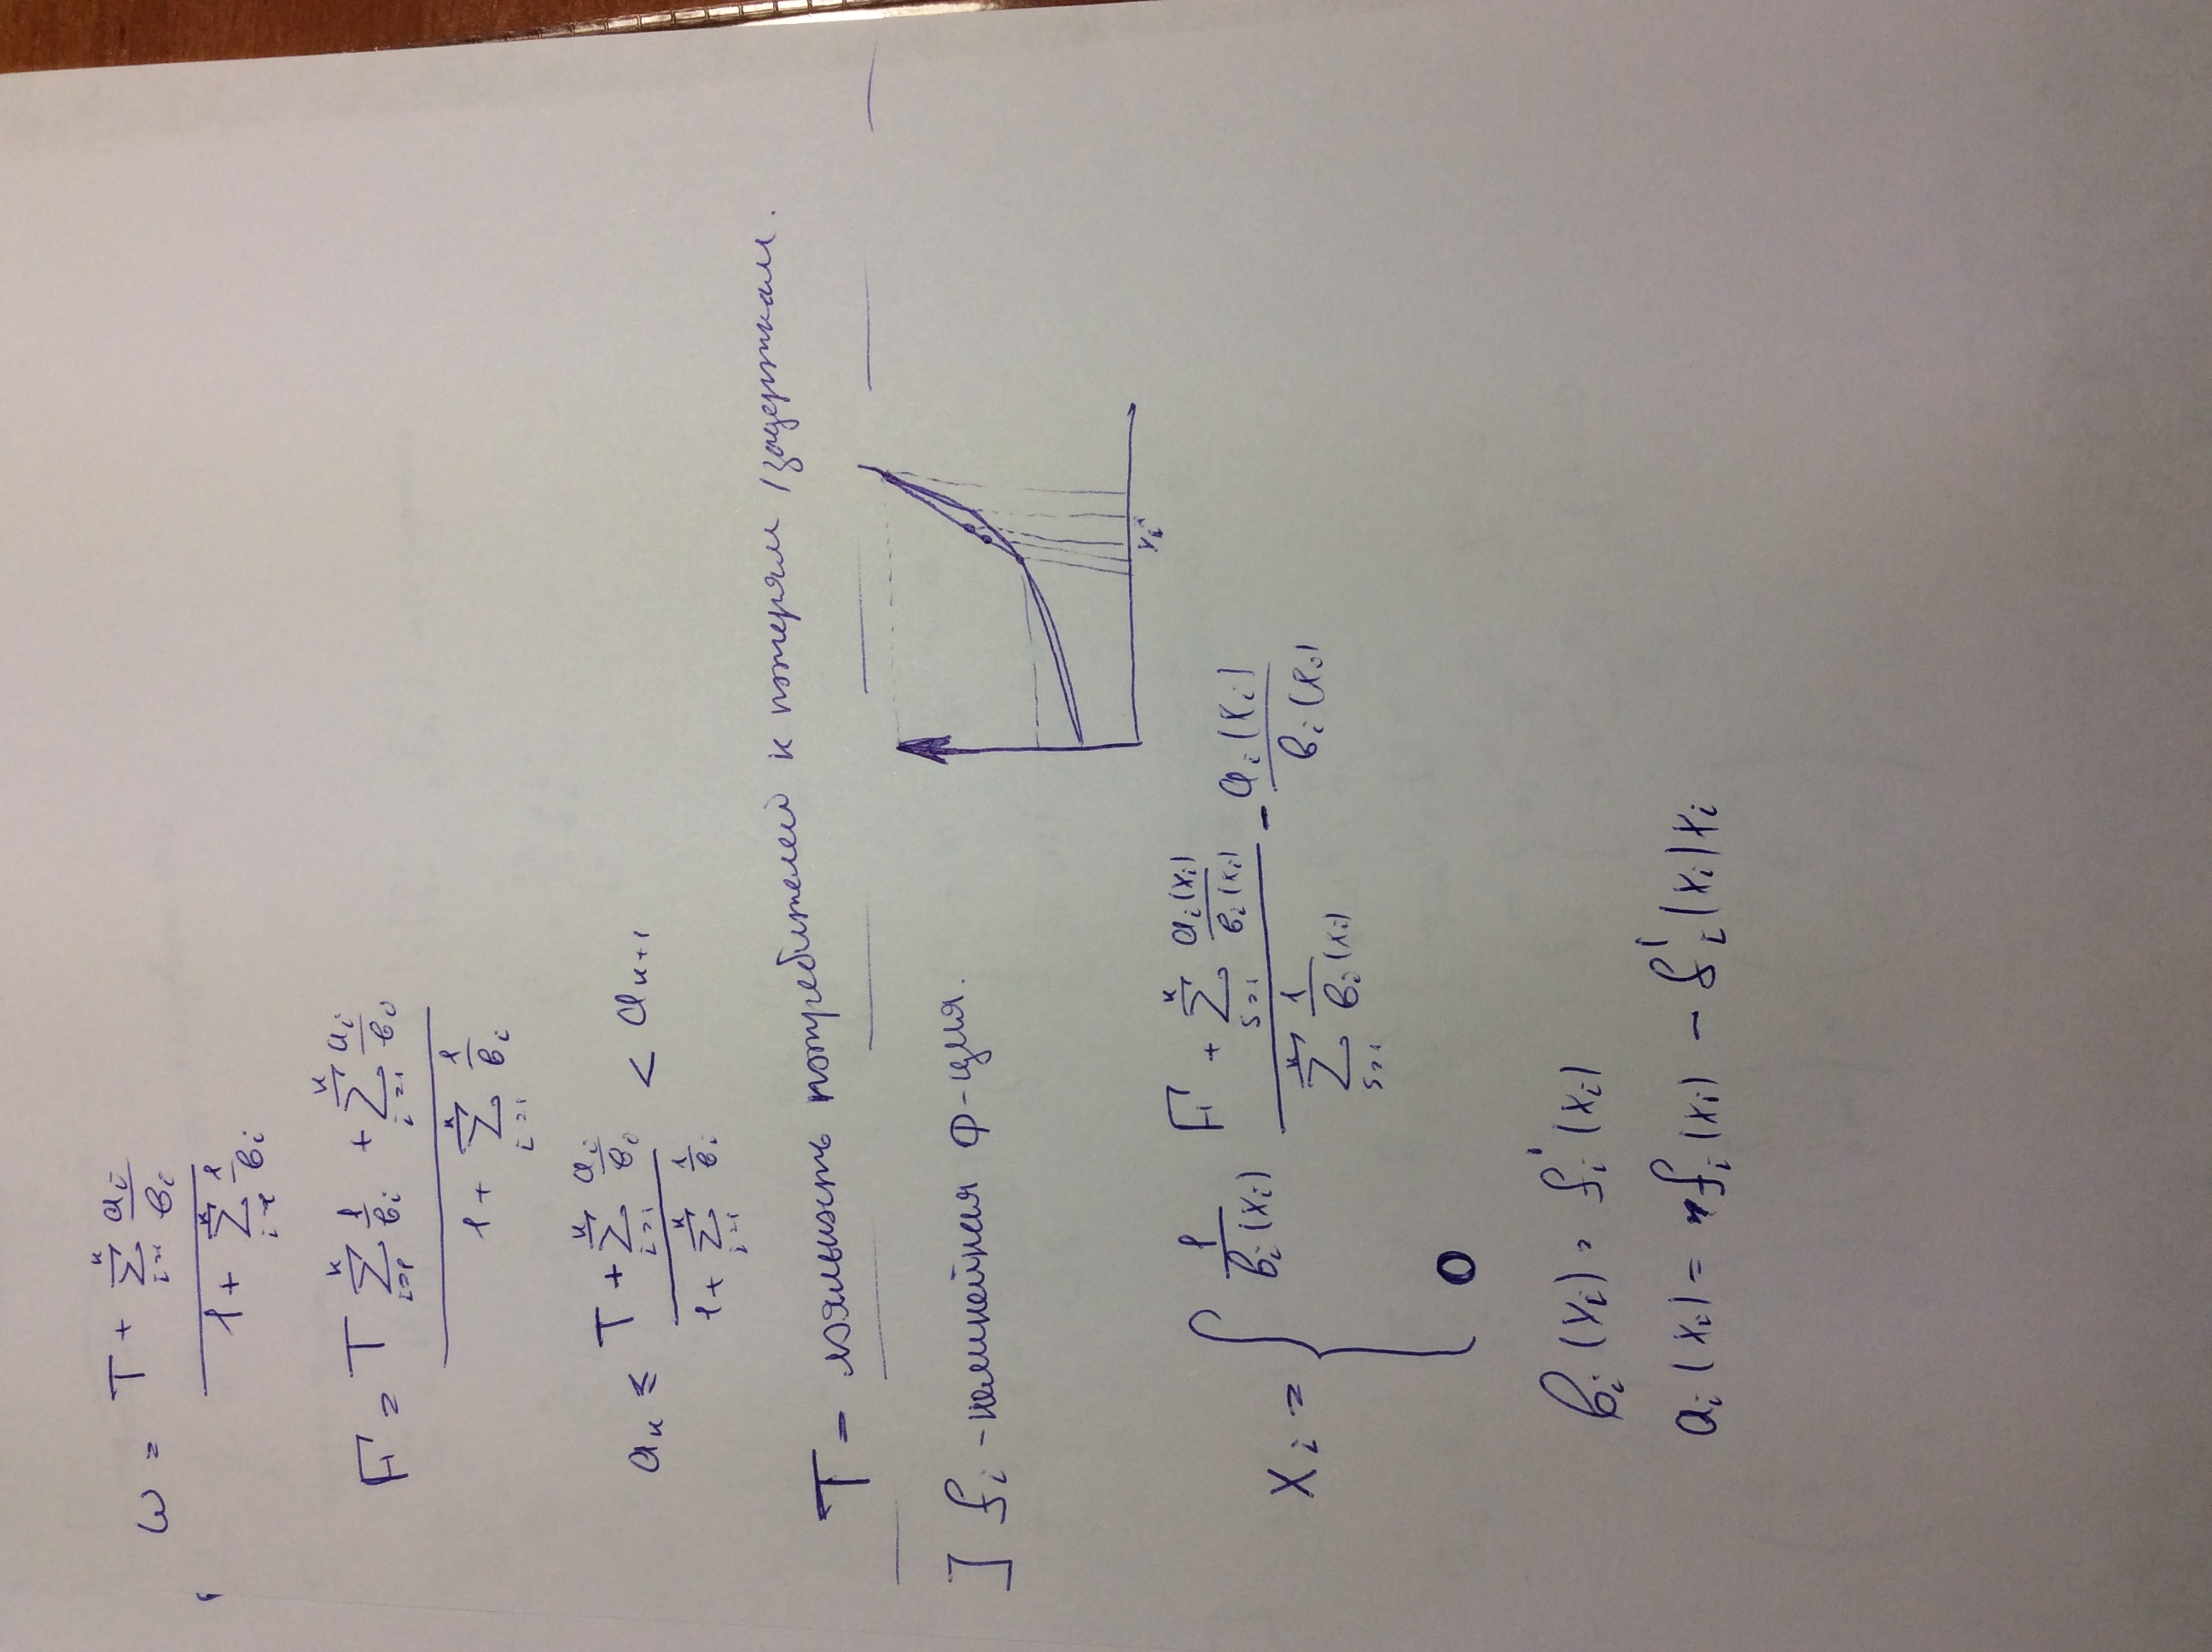 ω = (T + \sum_{i=1}^{к} \frac{a_i}{b_i}) / (1 + \sum_{i=1}^{к} \frac{1}{b_i})
F = (T \sum_{i=1}^{к} \frac{1}{b_i} + \sum_{i=1}^{к} \frac{a_i}{b_i}) / (1 + \sum_{i=1}^{к} \frac{1}{b_i})
a_к ≤ (T + \sum_{i=1}^{к} \frac{a_i}{b_i}) / (1 + \sum_{i=1}^{к} \frac{1}{b_i}) < a_{к+1}
T – лояльность потребителей к потерям / задержкам.
] f_i - нелинейная ф-ция.
x_i
x_i = { \frac{1}{b_i(x_i)} (F + \sum_{s=1}^{к} \frac{a_i(x_i)}{b_i(x_i)}) / (\sum_{s=1}^{к} \frac{1}{b_i(x_i)}) - \frac{a_i(x_i)}{b_i(x_i)}
0
b_i(x_i) = f_i'(x_i)
a_i(x_i) = f_i(x_i) - f_i'(x_i) x_i